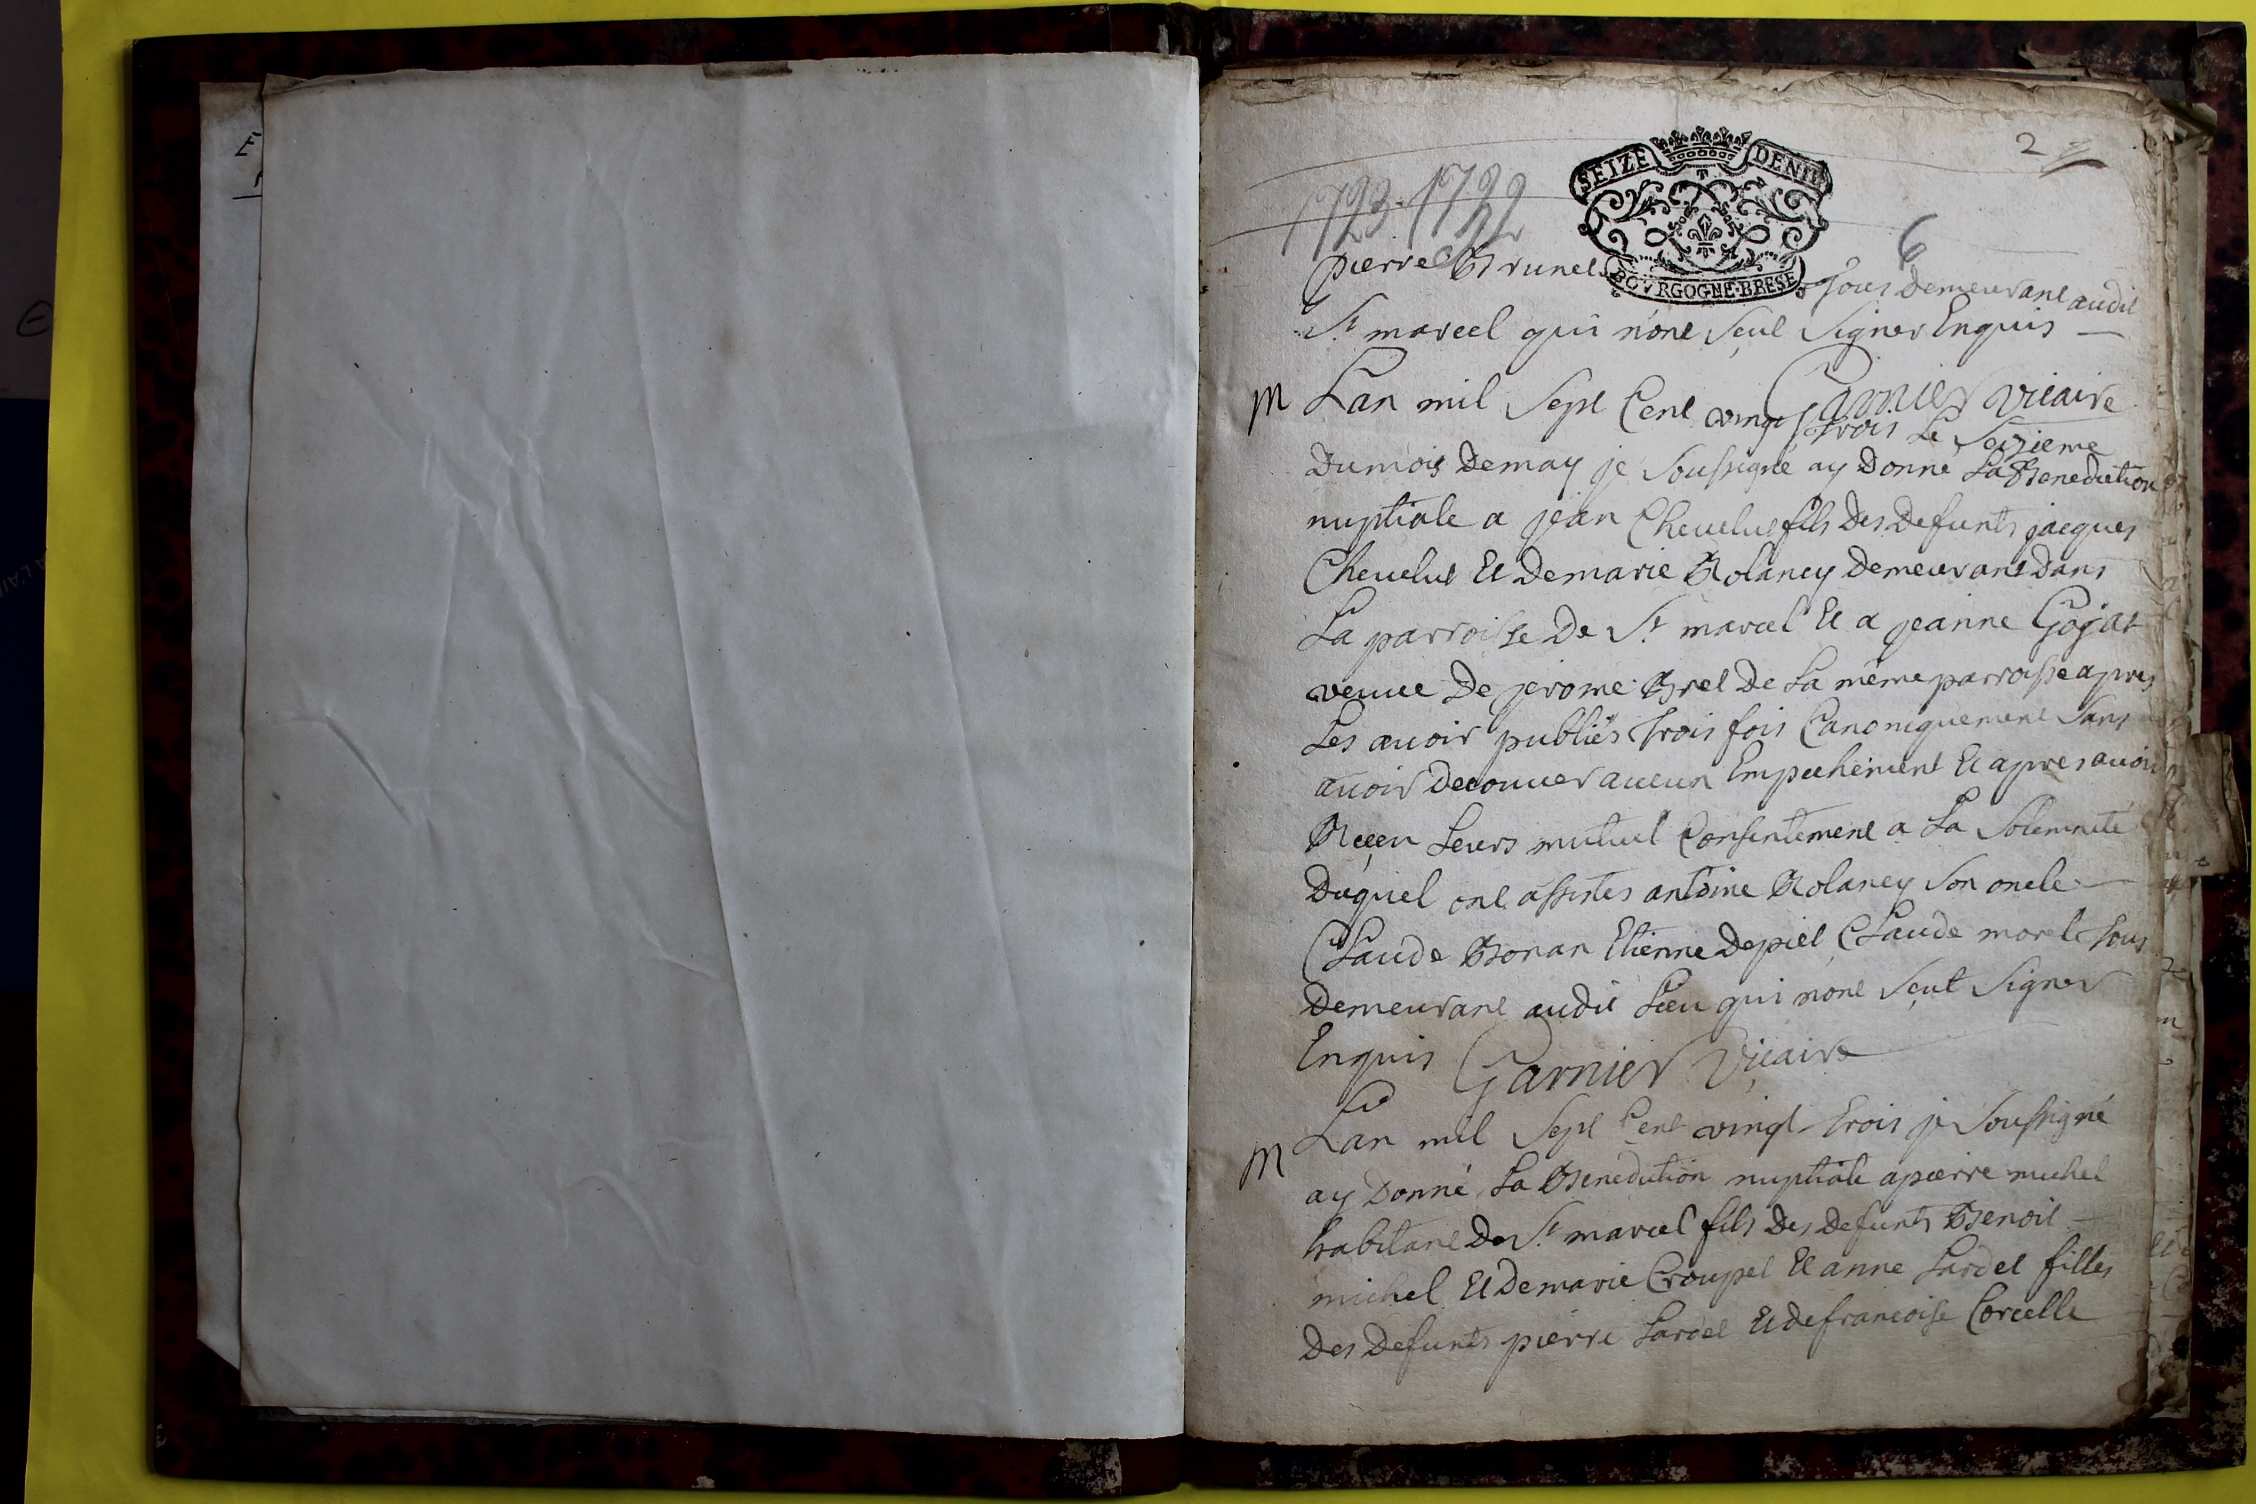 2
SEIZE DENIE
1723-1732
6
BOVRGOGNE·BRESE
pierre Brunet tous Demeurant audit
St marcel qui nont Sçut Signer Enquis
Garnier vicaire
M Lan mil Sept Cent vingt trois Le Seizieme
Dumois Demay je Soussigné ay Donné La Benediction
nuptiale a jean Chevelut fils Des Defunts jacques
Chevelut Et Demarie Rolancy Demeurant Dans
La parroisse De St marcel Et a jeanne Gojat
veuve De jerome Brel De La même parroisse apres
Les avoir publiés trois fois Canoniquement Sans
avoir Decouver aucun Empechement Et apres avoir
Reçeu Leurs mutuel Consentement a La Solemnité
Duquel ont assistes antoine Rolancy Son oncle
Claude Bonan Etienne Depiel Claude morel tous
Demeurant audit Lieu qui nont Sçut Signer
Enquis Garnier Vicaire
M Lan mil Sept Cent vingt trois je Soussigné
ay Donné La Benediction nuptiale a pierre michel
habitant De St marcel fils Des Defunts Benoit
michel Et Demarie Croupet Et anne Lardet filles
Des Defunts pierre Lardet Et Defrancoise Corcelle